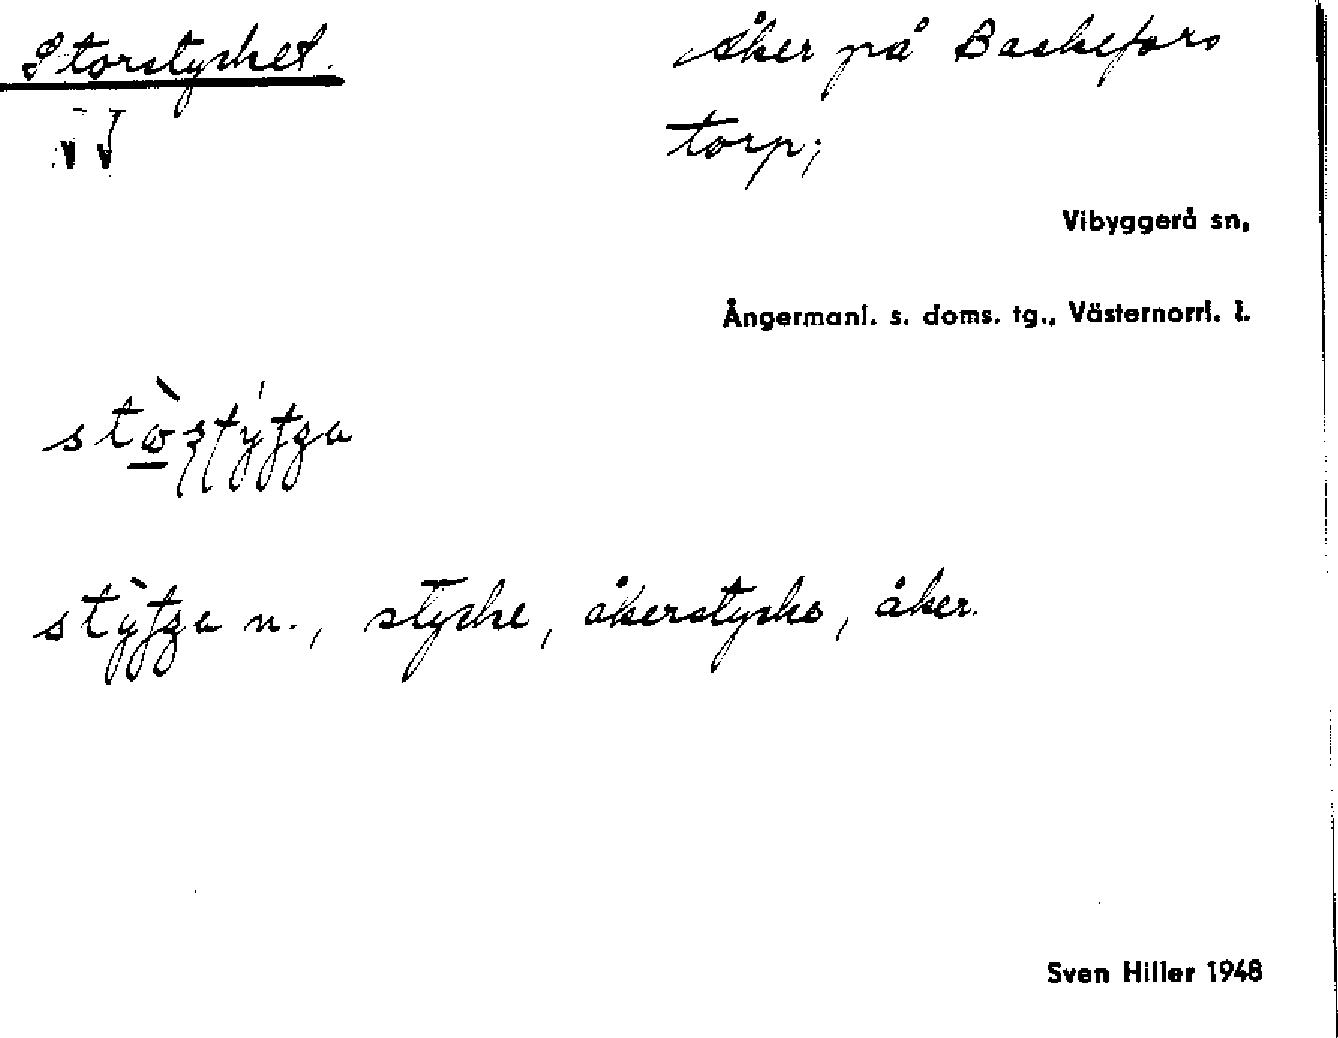 Storstycket.
åker på Baskefors
torp;
Vibyggerå sn,
Ångermanl. s. doms. tg., Västernorrl. l.
n., stycke, åkerstycke, åker.
Sven Hiller 1948